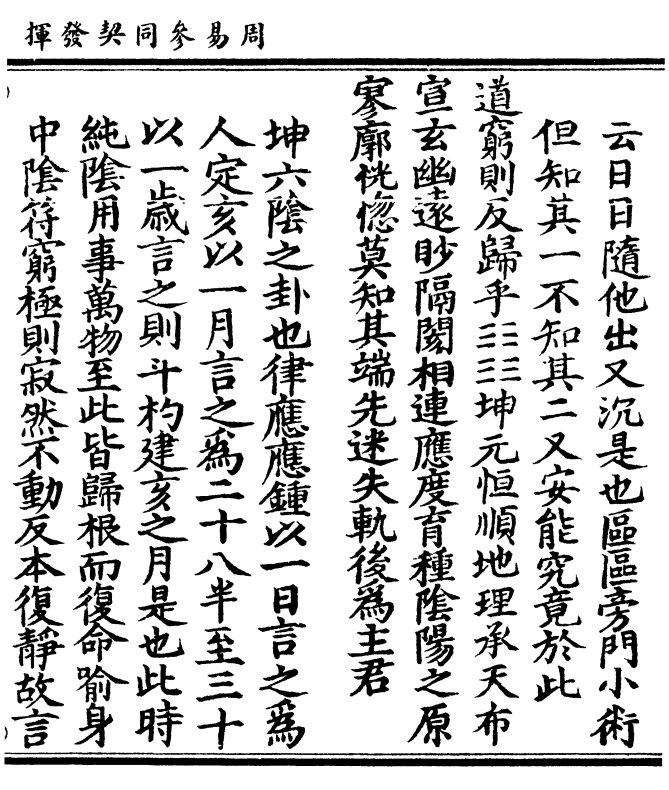 周易參同契發揮
云日日隨他出又沉是也區區旁門小術
但知其一不知其二又安能究竟於此
道窮則反歸乎☷☷坤元恒順地理承天布
宣玄幽遠眇隔閡相連應度育種陰陽之原
寥廓恍惚莫知其端先迷失軌後爲主君
坤六陰之卦也律應應鍾以一日言之爲
人定亥以一月言之爲二十八半至三十
以一歲言之則斗杓建亥之月是也此時
純陰用事萬物至此皆歸根而復命喻身
中陰符窮極則寂然不動反本復靜故言